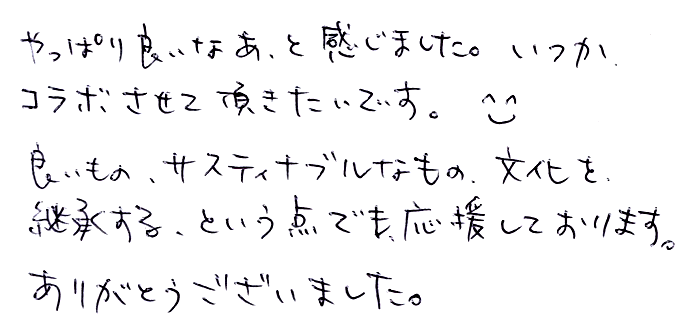 やっぱり良いなあ、と感じました。いつか
コラボさせて頂きたいです。^^
良いもの、サスティナブルなもの、文化を
継承する、という点でも、応援しております。
ありがとうございました。